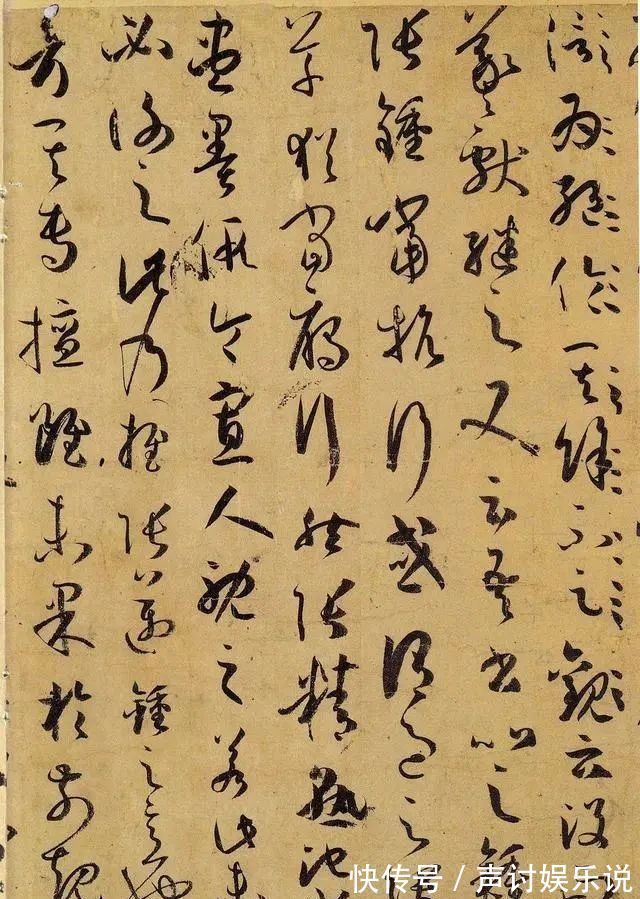 為絕倫其餘不足觀云沒而
羲獻繼之又云吾書比之鍾
張鍾當抗行或謂過之張
草猶當鴈行然張精熟池水
盡墨假令寡人耽之若此未
必謝之此乃推張邁鍾之意也
考其專擅雖未果於前規
快传号 / 声讨娱乐说